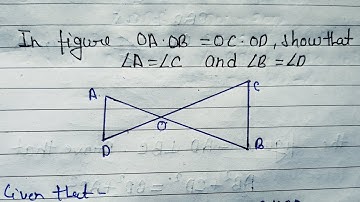 In figure OA·OB = OC·OD, show that
∠A=∠C and ∠B=∠D
C
A
O
D
B
Given that